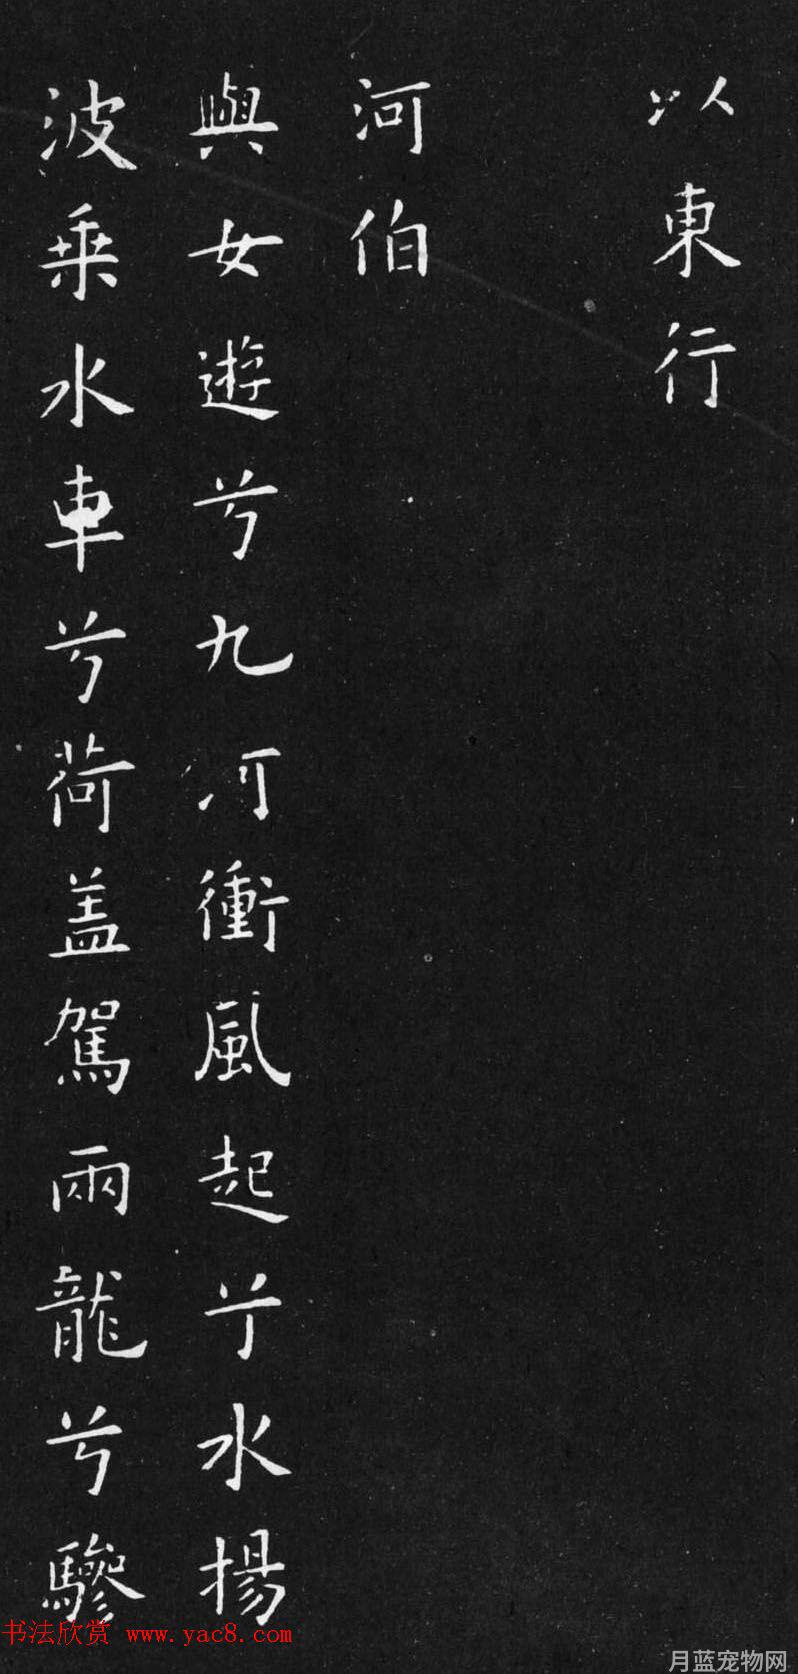 以東行
河伯
與女遊兮九河衝風起兮水揚
波乗水車兮荷盖駕兩龍兮驂
书法欣赏 www.yac8.com
月蓝宠物网